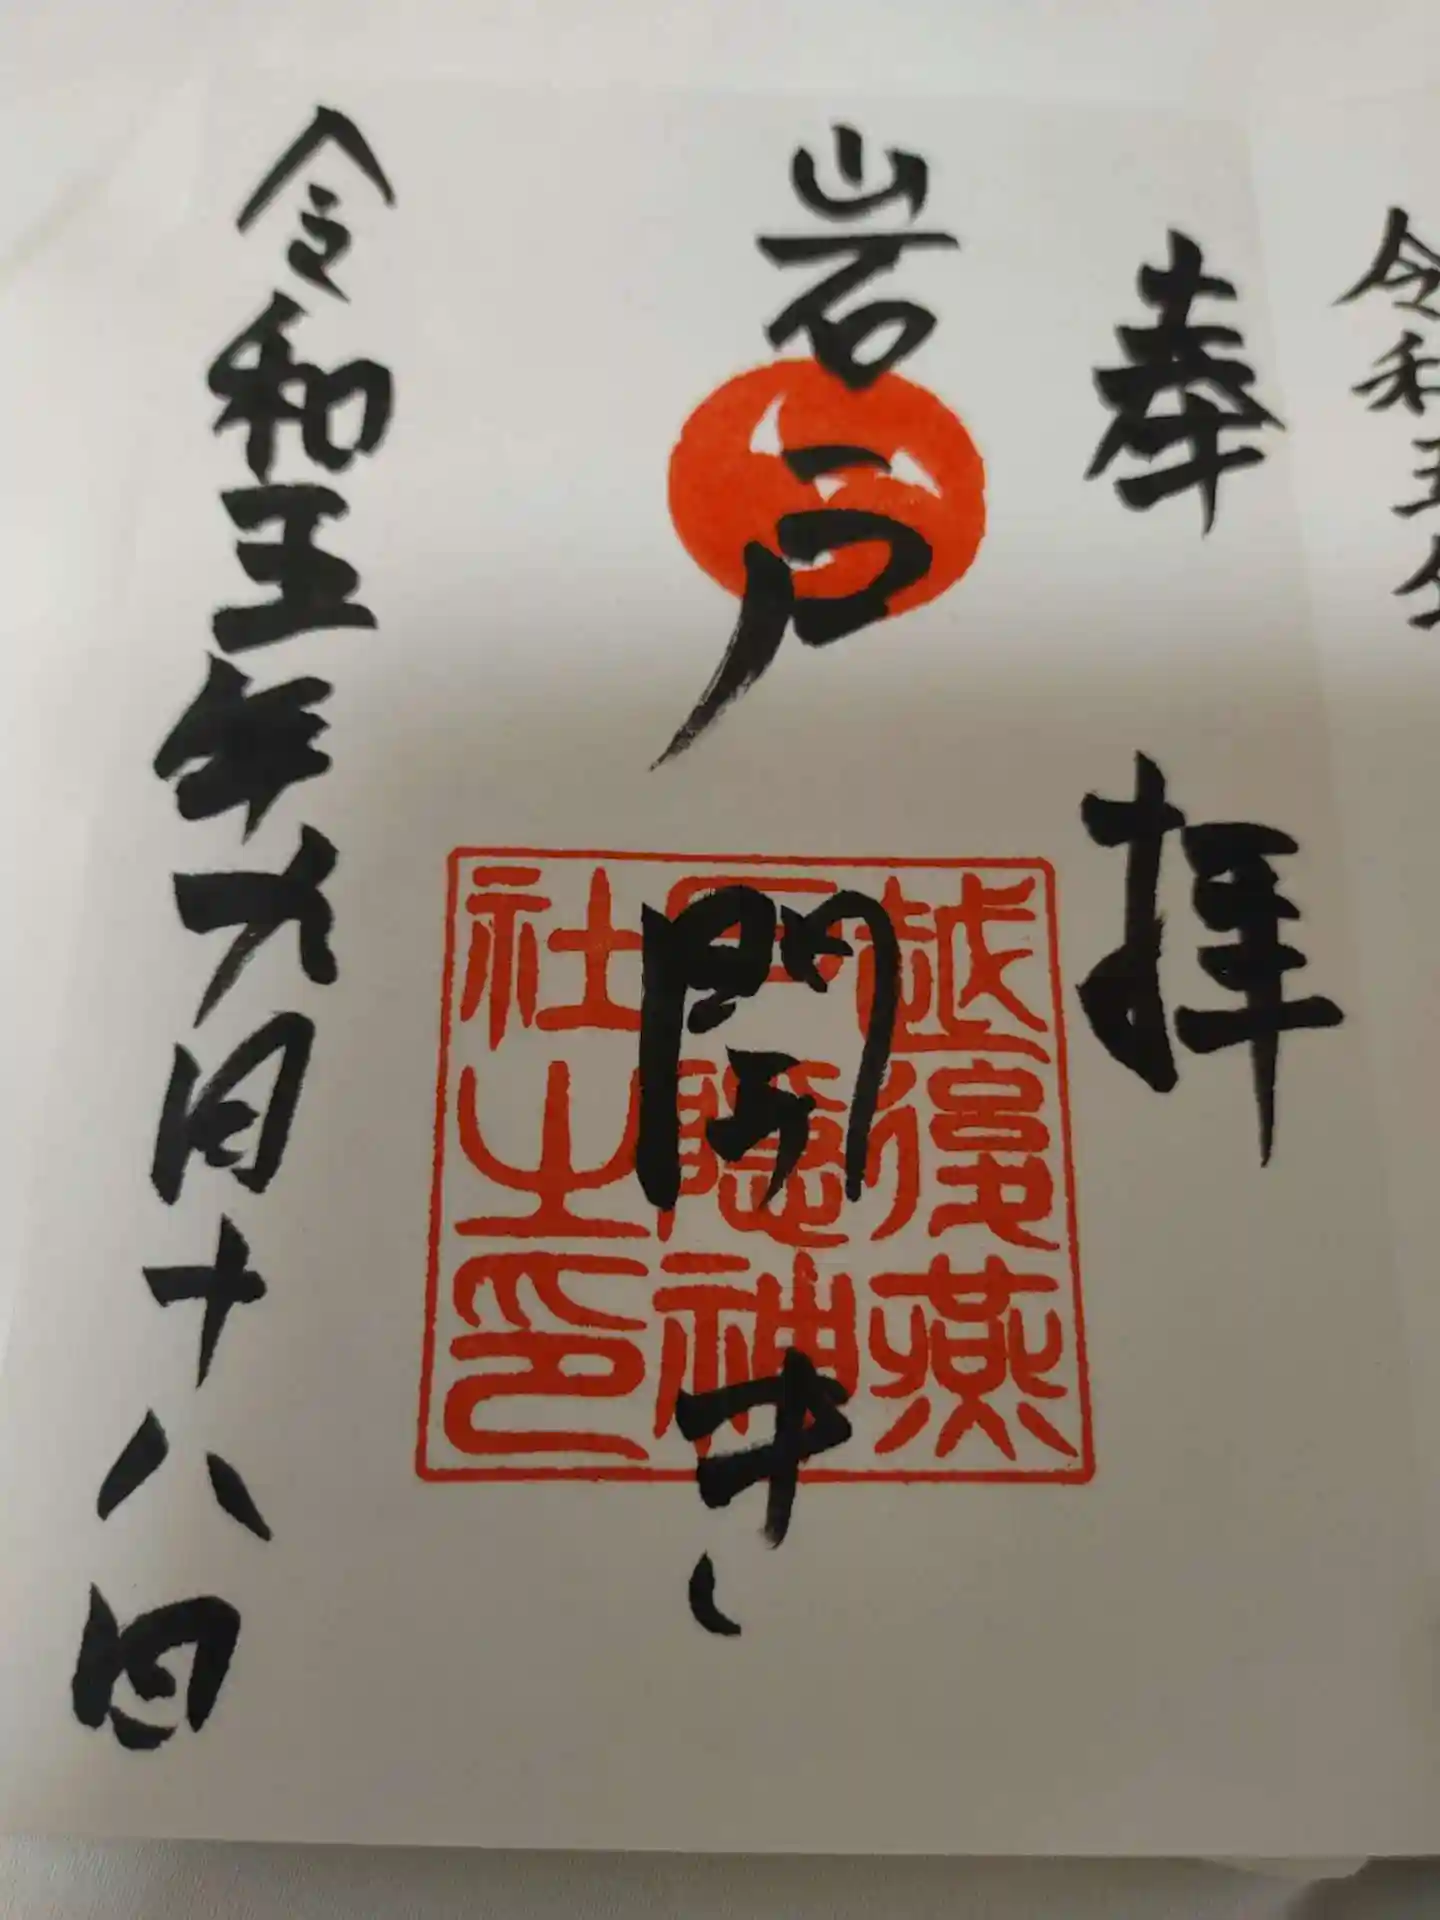 令和五年
奉拝
岩戸開き
越後燕
戸隠神
社之印
令和五年九月十八日